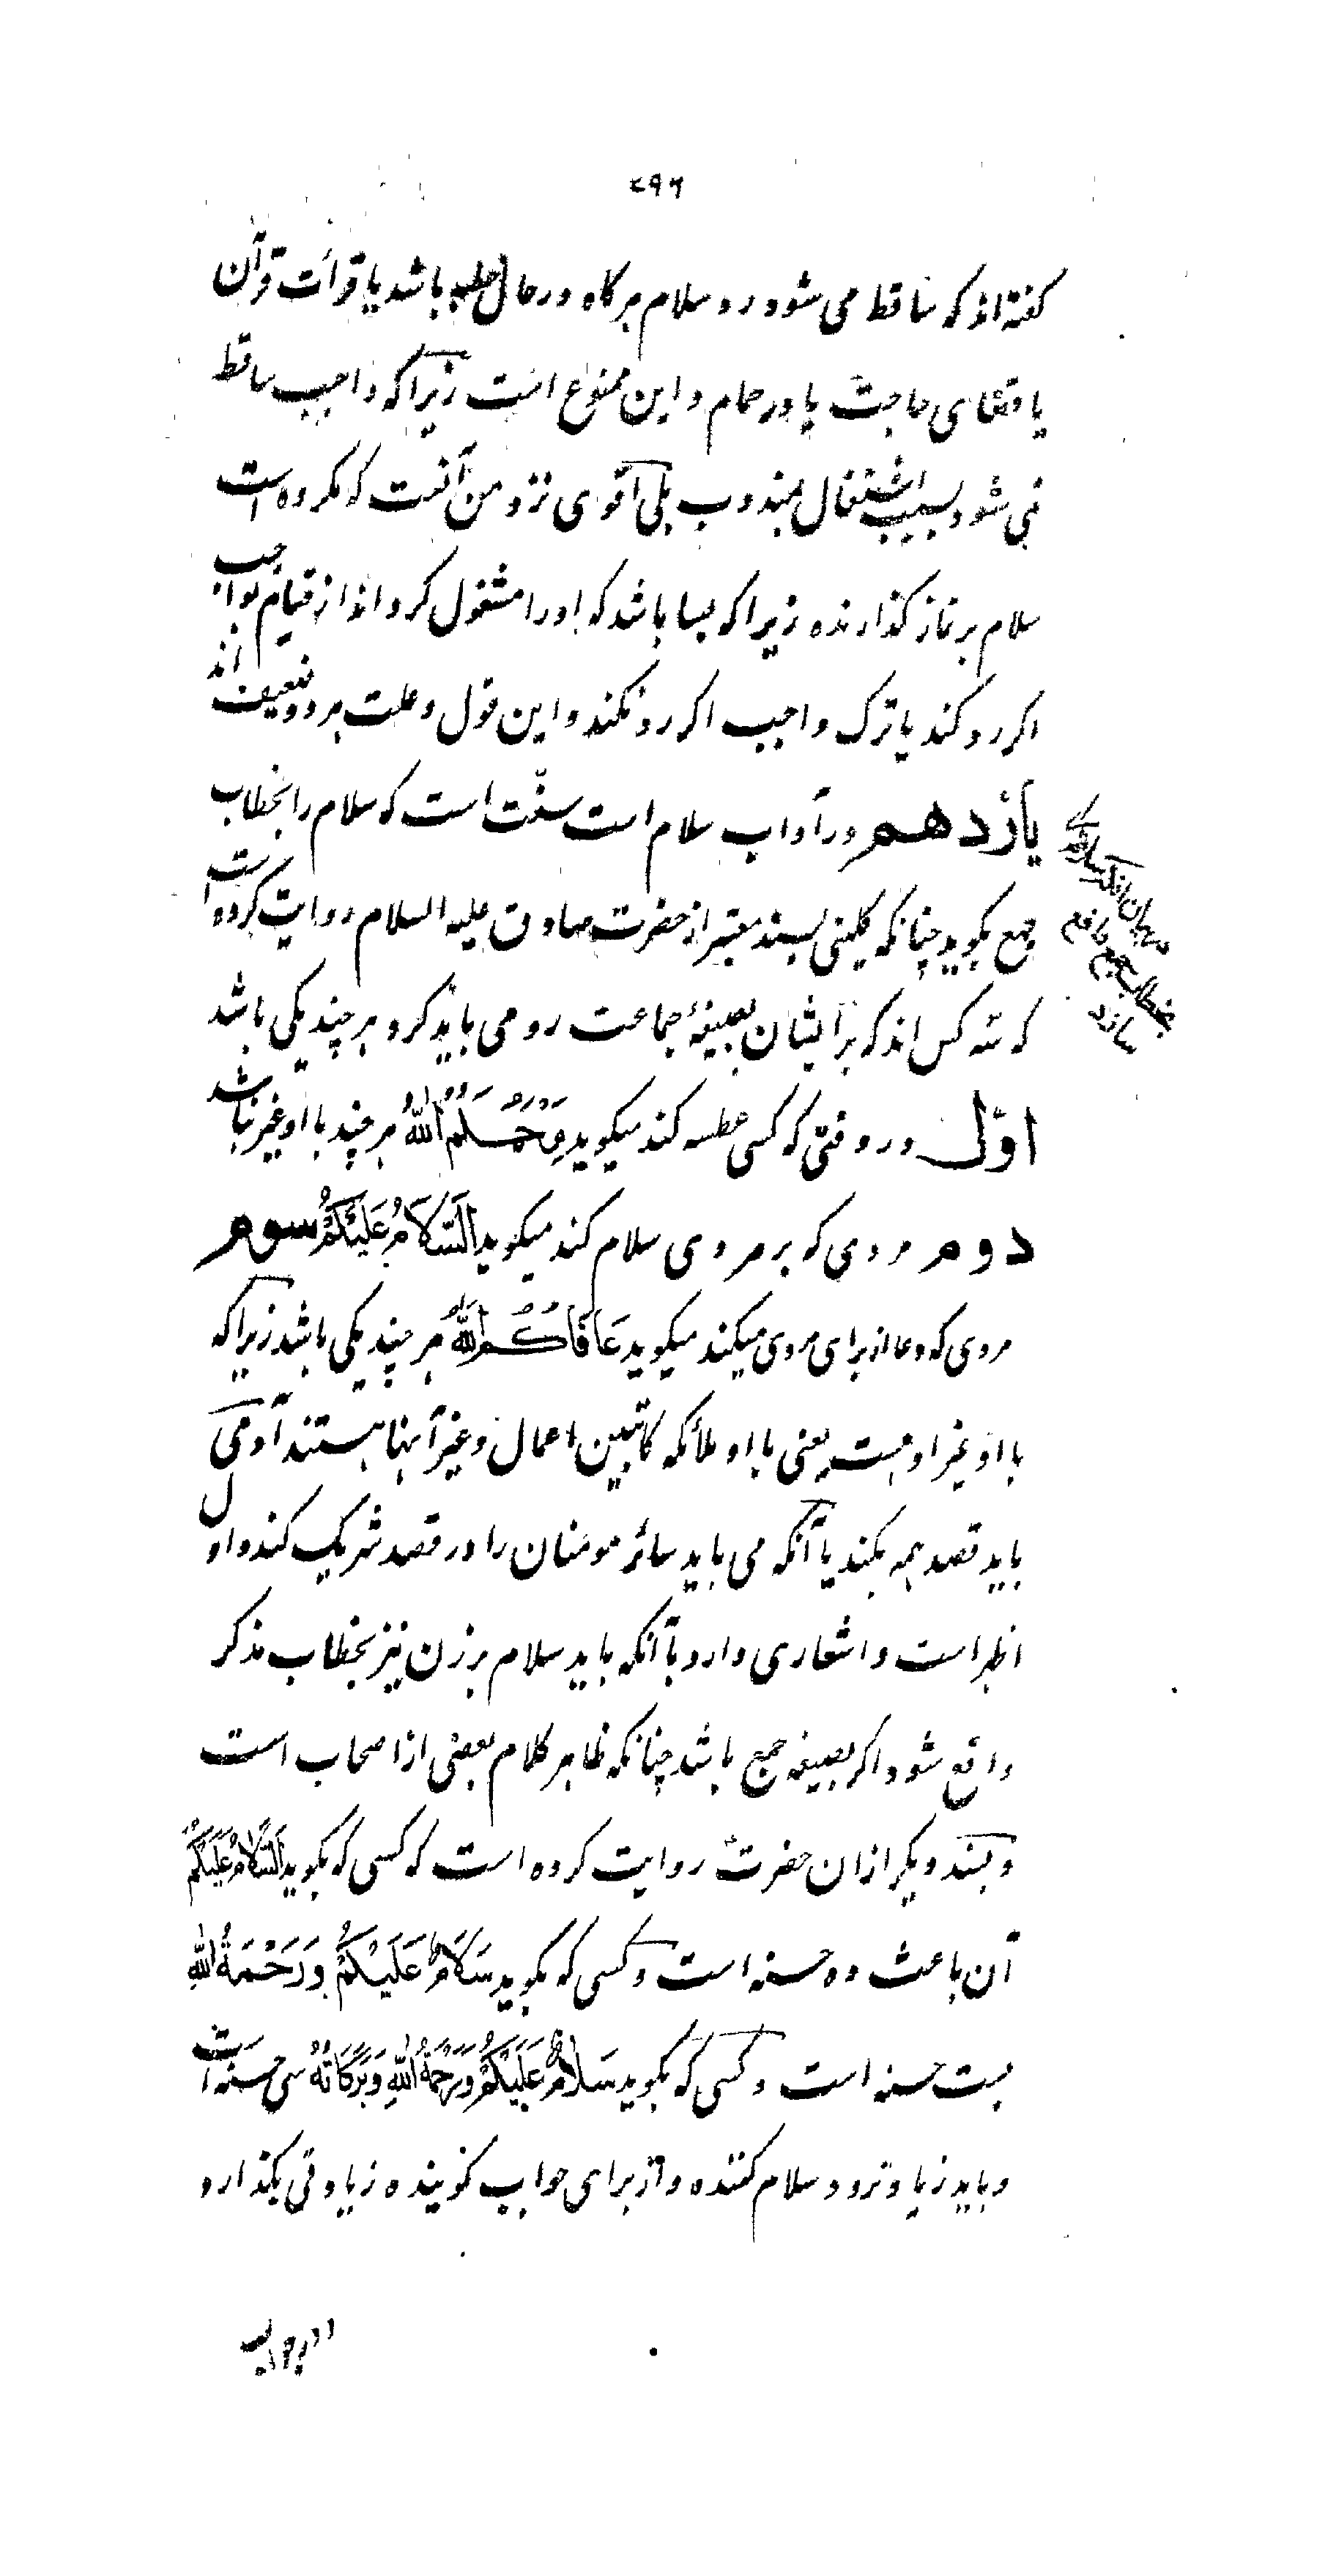 ۲۹۶
کفته‌اند که ساقط می شود رد سلام هر کاه در حال خطبه باشد یا قرائت قرآن
یا قضای حاجت یا در حمام و این ممنوع است زیرا که واجب ساقط
نمی شود بسبب اشتغال بمندوب بلی اقوی نزد من آنست که مکروه است
سلام بر نماز کذارنده زیرا که بسا باشد که او را مشغول کرداند از قیام بواجب
اکر رد کند یا ترک واجب اکر رد نکند و این قول و علت هر دو ضعیف اند
یازدهم در آداب سلام است سنّت است که سلام را بخطاب
جمع بکوید چنانکه کلینی بسند معتبر از حضرت صادق علیه السلام روایت کرده است
که سه کس اند که بر ایشان بصیغهٔ جماعت رد می باید کرد هر چند یکی باشد
اوّل در وقتی که کسی عطسه کند میکوید یَرْحَمُکُمُ اللهُ هر چند با او غیر نباشد
دوم مردی که بر مردی سلام کند میکوید اَلسَّلَامُ عَلَیْکُمْ سوم
مردی که دعا از برای مردی میکند میکوید عَافَاکُمُ اللهُ هر چند یکی باشد زیرا که
با او غیر او هست یعنی با او ملائکه کاتبین اعمال و غیر آنها هستند آدمی
باید قصد همه بکند یا آنکه می باید سائر مومنان را در قصد شریک کند و اول
اظهر است و اشعاری دارد بآنکه باید سلام بر زن نیز بخطاب مذکر
واقع شود اکر بصیغه جمع باشد چنانکه ظاهر کلام بعضی از اصحاب است
و بسند دیکر از ان حضرت روایت کرده است که کسی که بکوید اَلسَّلَامُ عَلَیْکُمْ
آن باعث ده حسنه است و کسی که بکوید سَلَامٌ عَلَیْکُمْ وَرَحْمَةُ اللهِ
بیست حسنه است و کسی که بکوید سَلَامٌ عَلَیْکُمْ وَرَحْمَةُ اللهِ وَبَرَکَاتُهُ سی حسنه است
و باید زیاد نرود سلام کننده و از برای جواب کوینده زیادتی بکذارد
بخطاب جمع واقع
سازد
در جواب